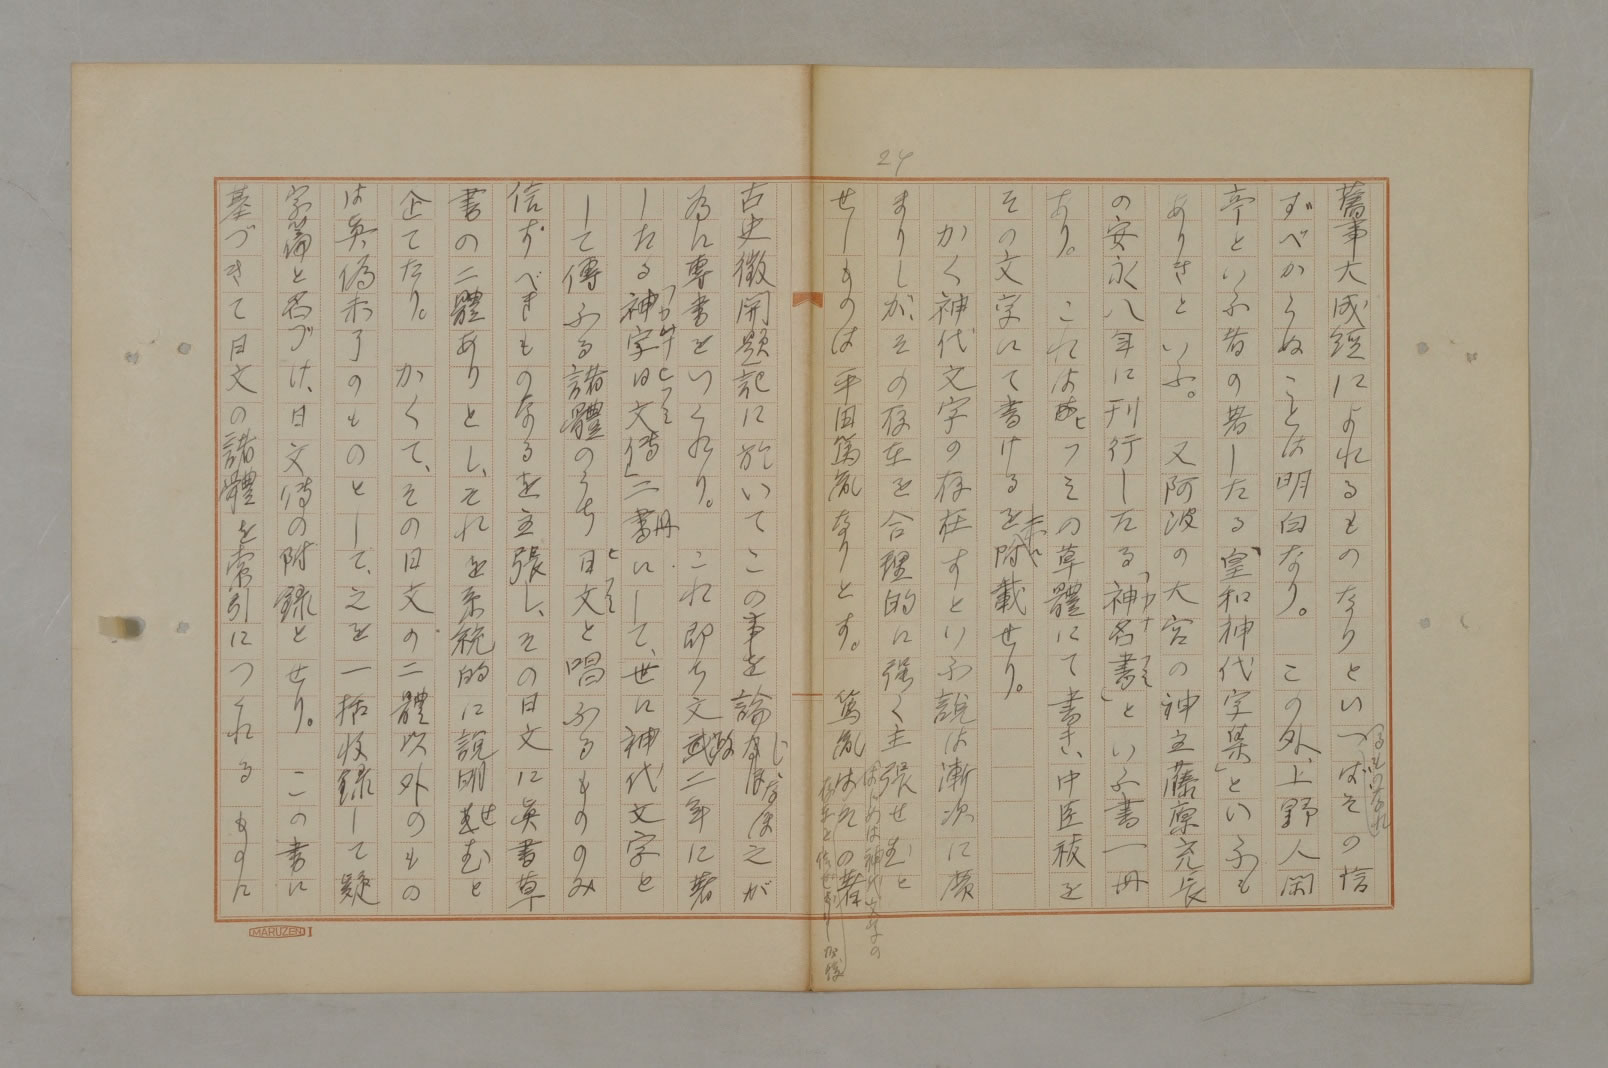 24
舊事大成經によれるものなりといつばその信
ずべからぬことは明白なり。この外、上野人閑
亭といふ者の著したる「皇和神代字集」といふも
ありきといふ。又阿波の大宮の神主藤原充長
の安永八年に刊行したる「神名書」といふ書一冊
カナ
あり。これはヒフミの草體にて書き、中臣祓を
その文字にて書けるを附載せり。
かく神代文字の存在すといふ説は漸次に廣
まりしが、その存在を合理的に强く主張せむと
せしものは平田篤胤なりとす。篤胤はその著
はじめは神代文字の
存在を信ぜざりしが後
古史徴開題記に於いてこの事を論じなほ之が
為に專書をつくれり。これ即ち文政二年に著
したる神字日文傳二冊にして、世に神代文字と
ヒフミ
して傳ふる諸體のうち日文と唱ふるもののみ
ヒフミ
信ずべきものなるを主張し、その日文に眞書草
書の二體ありとし、それを系統的に説明せむと
企てたり。かくて、その日文の二體以外のもの
は眞僞未了のものとして、之を一括收録して疑
字篇と名づけ、日文傳の附録とせり。この書に
基づきて日文の諸體を索引につくれるものに
MARUZEN I